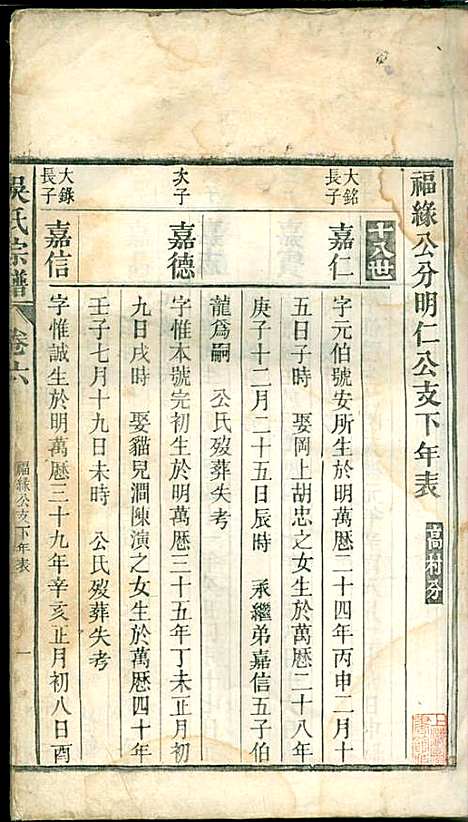 福緣公分明仁公支下年表 高村分
十八世
大銘長子
嘉仁
字元伯號安所生於明萬曆二十四年丙申二月十
五日子時 娶岡上胡忠之女生於萬曆二十八年
庚子十二月二十五日辰時 承繼弟嘉信五子伯
龍爲嗣 公氏歿葬失考
次子
嘉德
字惟本號完初生於明萬曆三十五年丁未正月初
九日戌時 娶貓兒澗陳演之女生於萬曆四十年
壬子七月十九日未時 公氏歿葬失考
大錄長子
嘉信
字惟誠生於明萬曆三十九年辛亥正月初八日酉
吳氏宗譜 卷六 福緣公支下年表 一